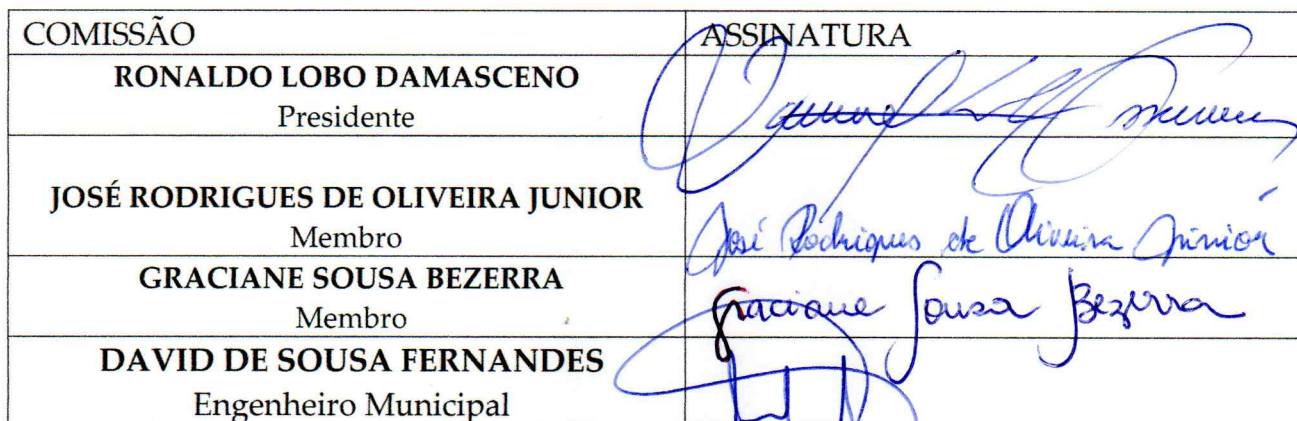 COMISSÃO ASSINATURA
RONALDO LOBO DAMASCENO
Presidente
JOSÉ RODRIGUES DE OLIVEIRA JUNIOR
Membro
José Rodrigues de Oliveira Júnior
GRACIANE SOUSA BEZERRA
Membro
Graciane Sousa Bezerra
DAVID DE SOUSA FERNANDES
Engenheiro Municipal